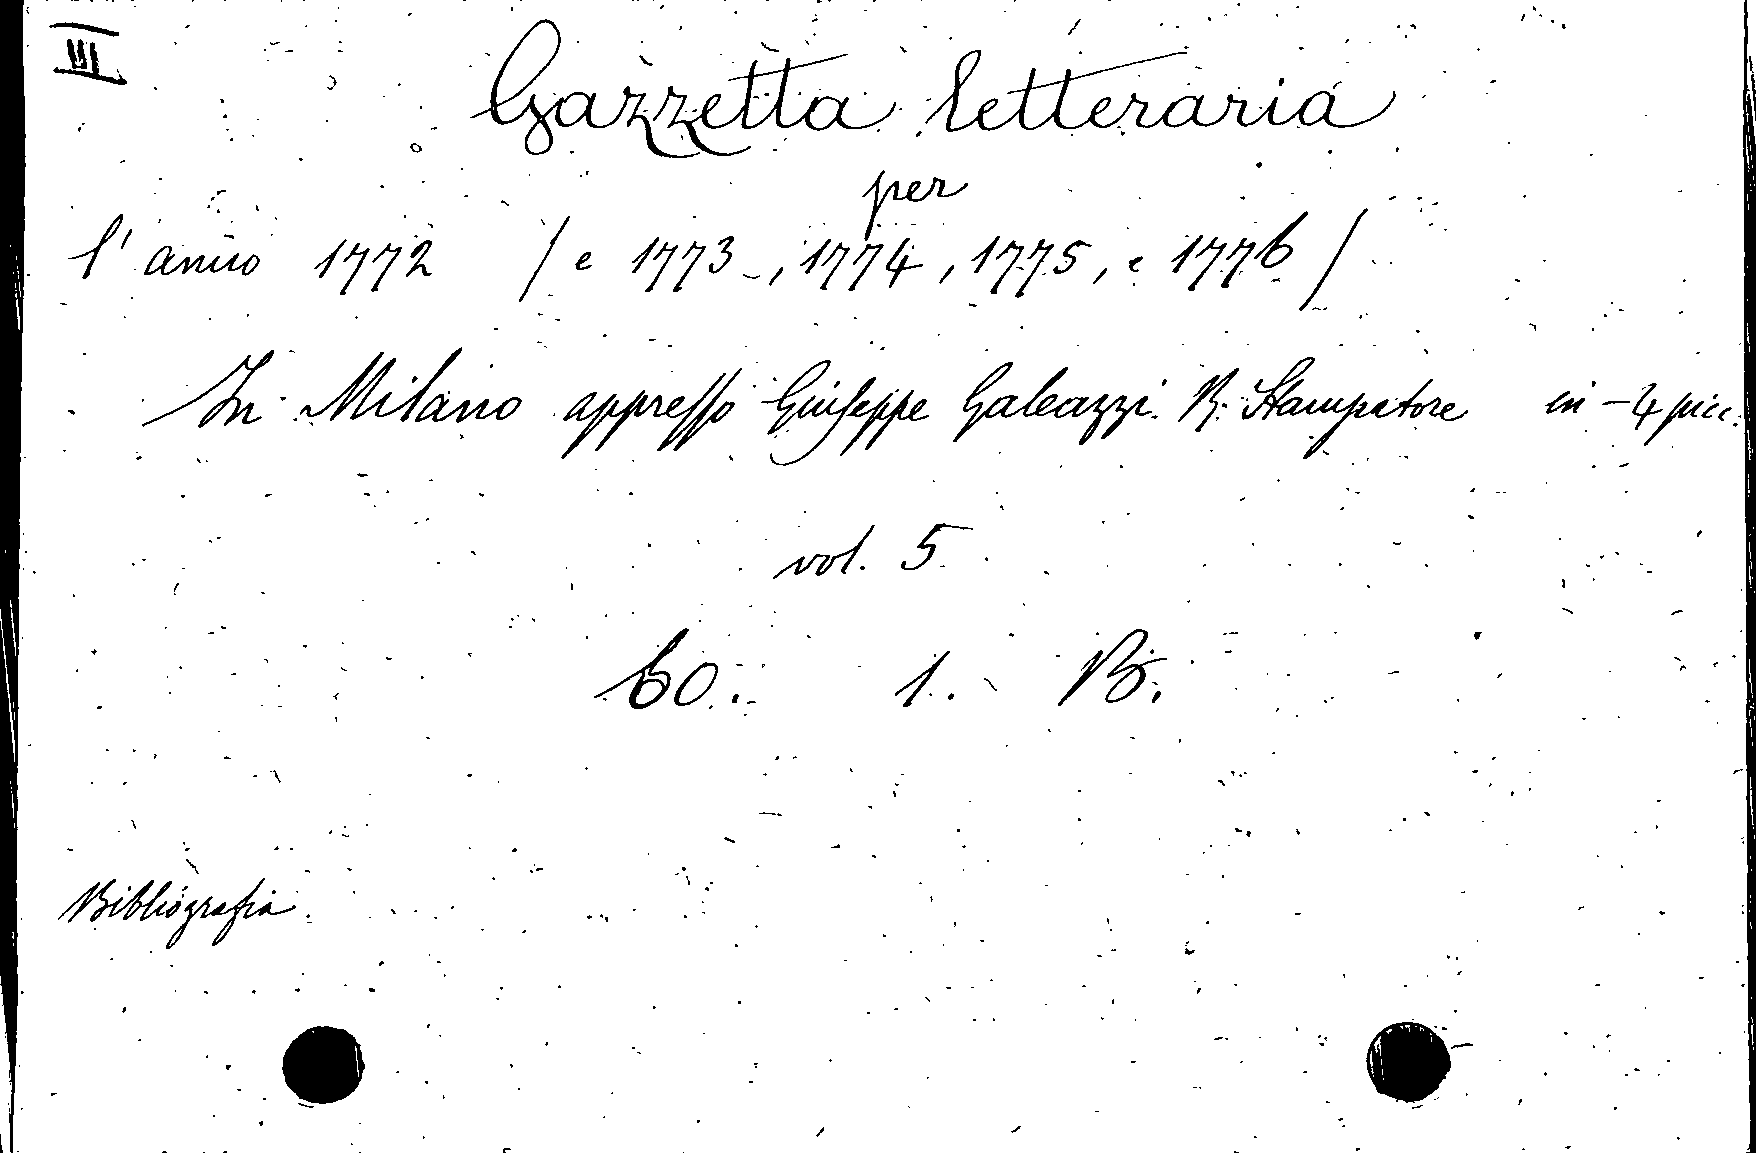 III
Gazzetta letteraria
per
l'anno 1772 / e 1773, 1774, 1775, e 1776 /
In Milano appresso Giuseppe Galeazzi R. Stampatore in-4 picc.
vol. 5
60. 1. B.
Bibliografia